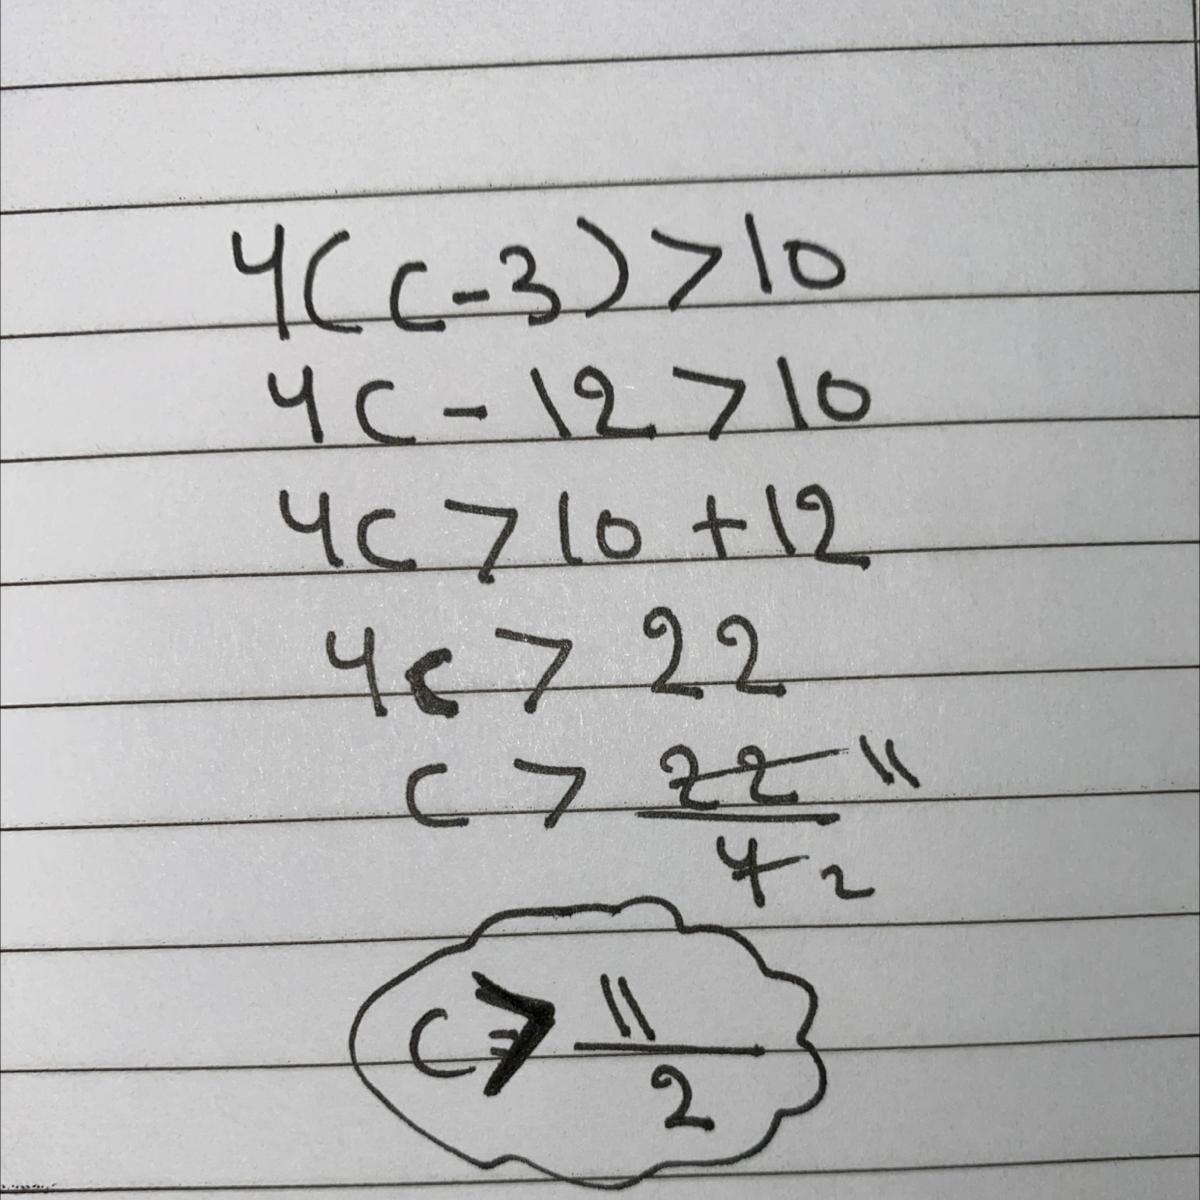 4(c-3)>10
4c-12>10
4c>10+12
4c>22
c>22/4 11/2
c>11/2